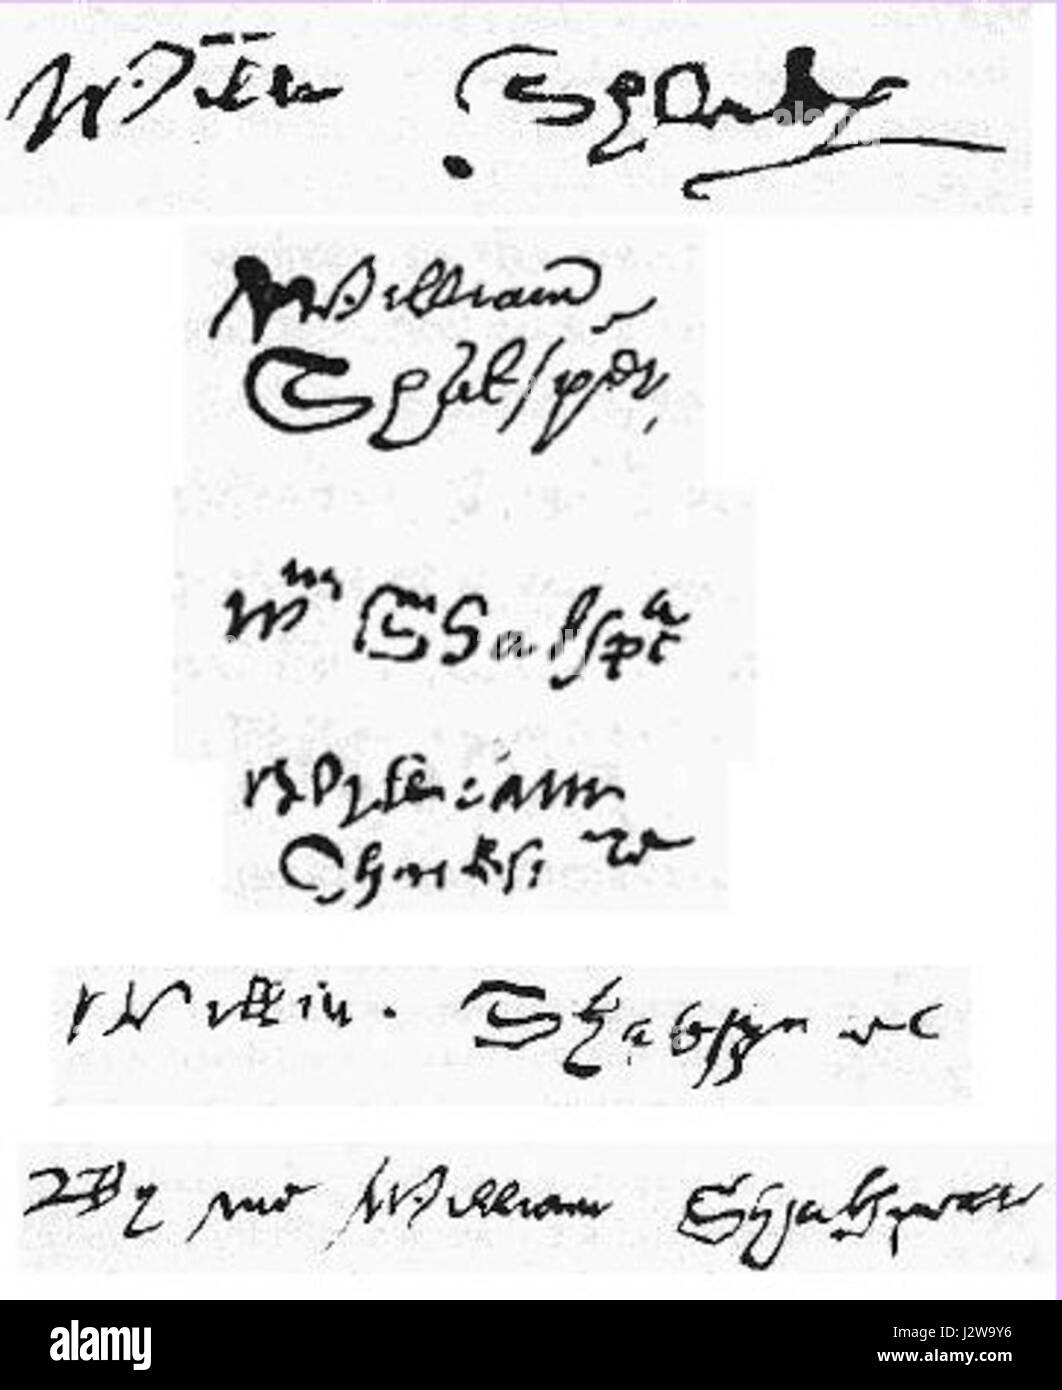 Willm Shakp
William
Shakspēr
Wm Shakspe
William
Shakspere
Willm Shakspere
By me William Shakspeare
alamy
Image ID: J2W9Y6
www.alamy.com